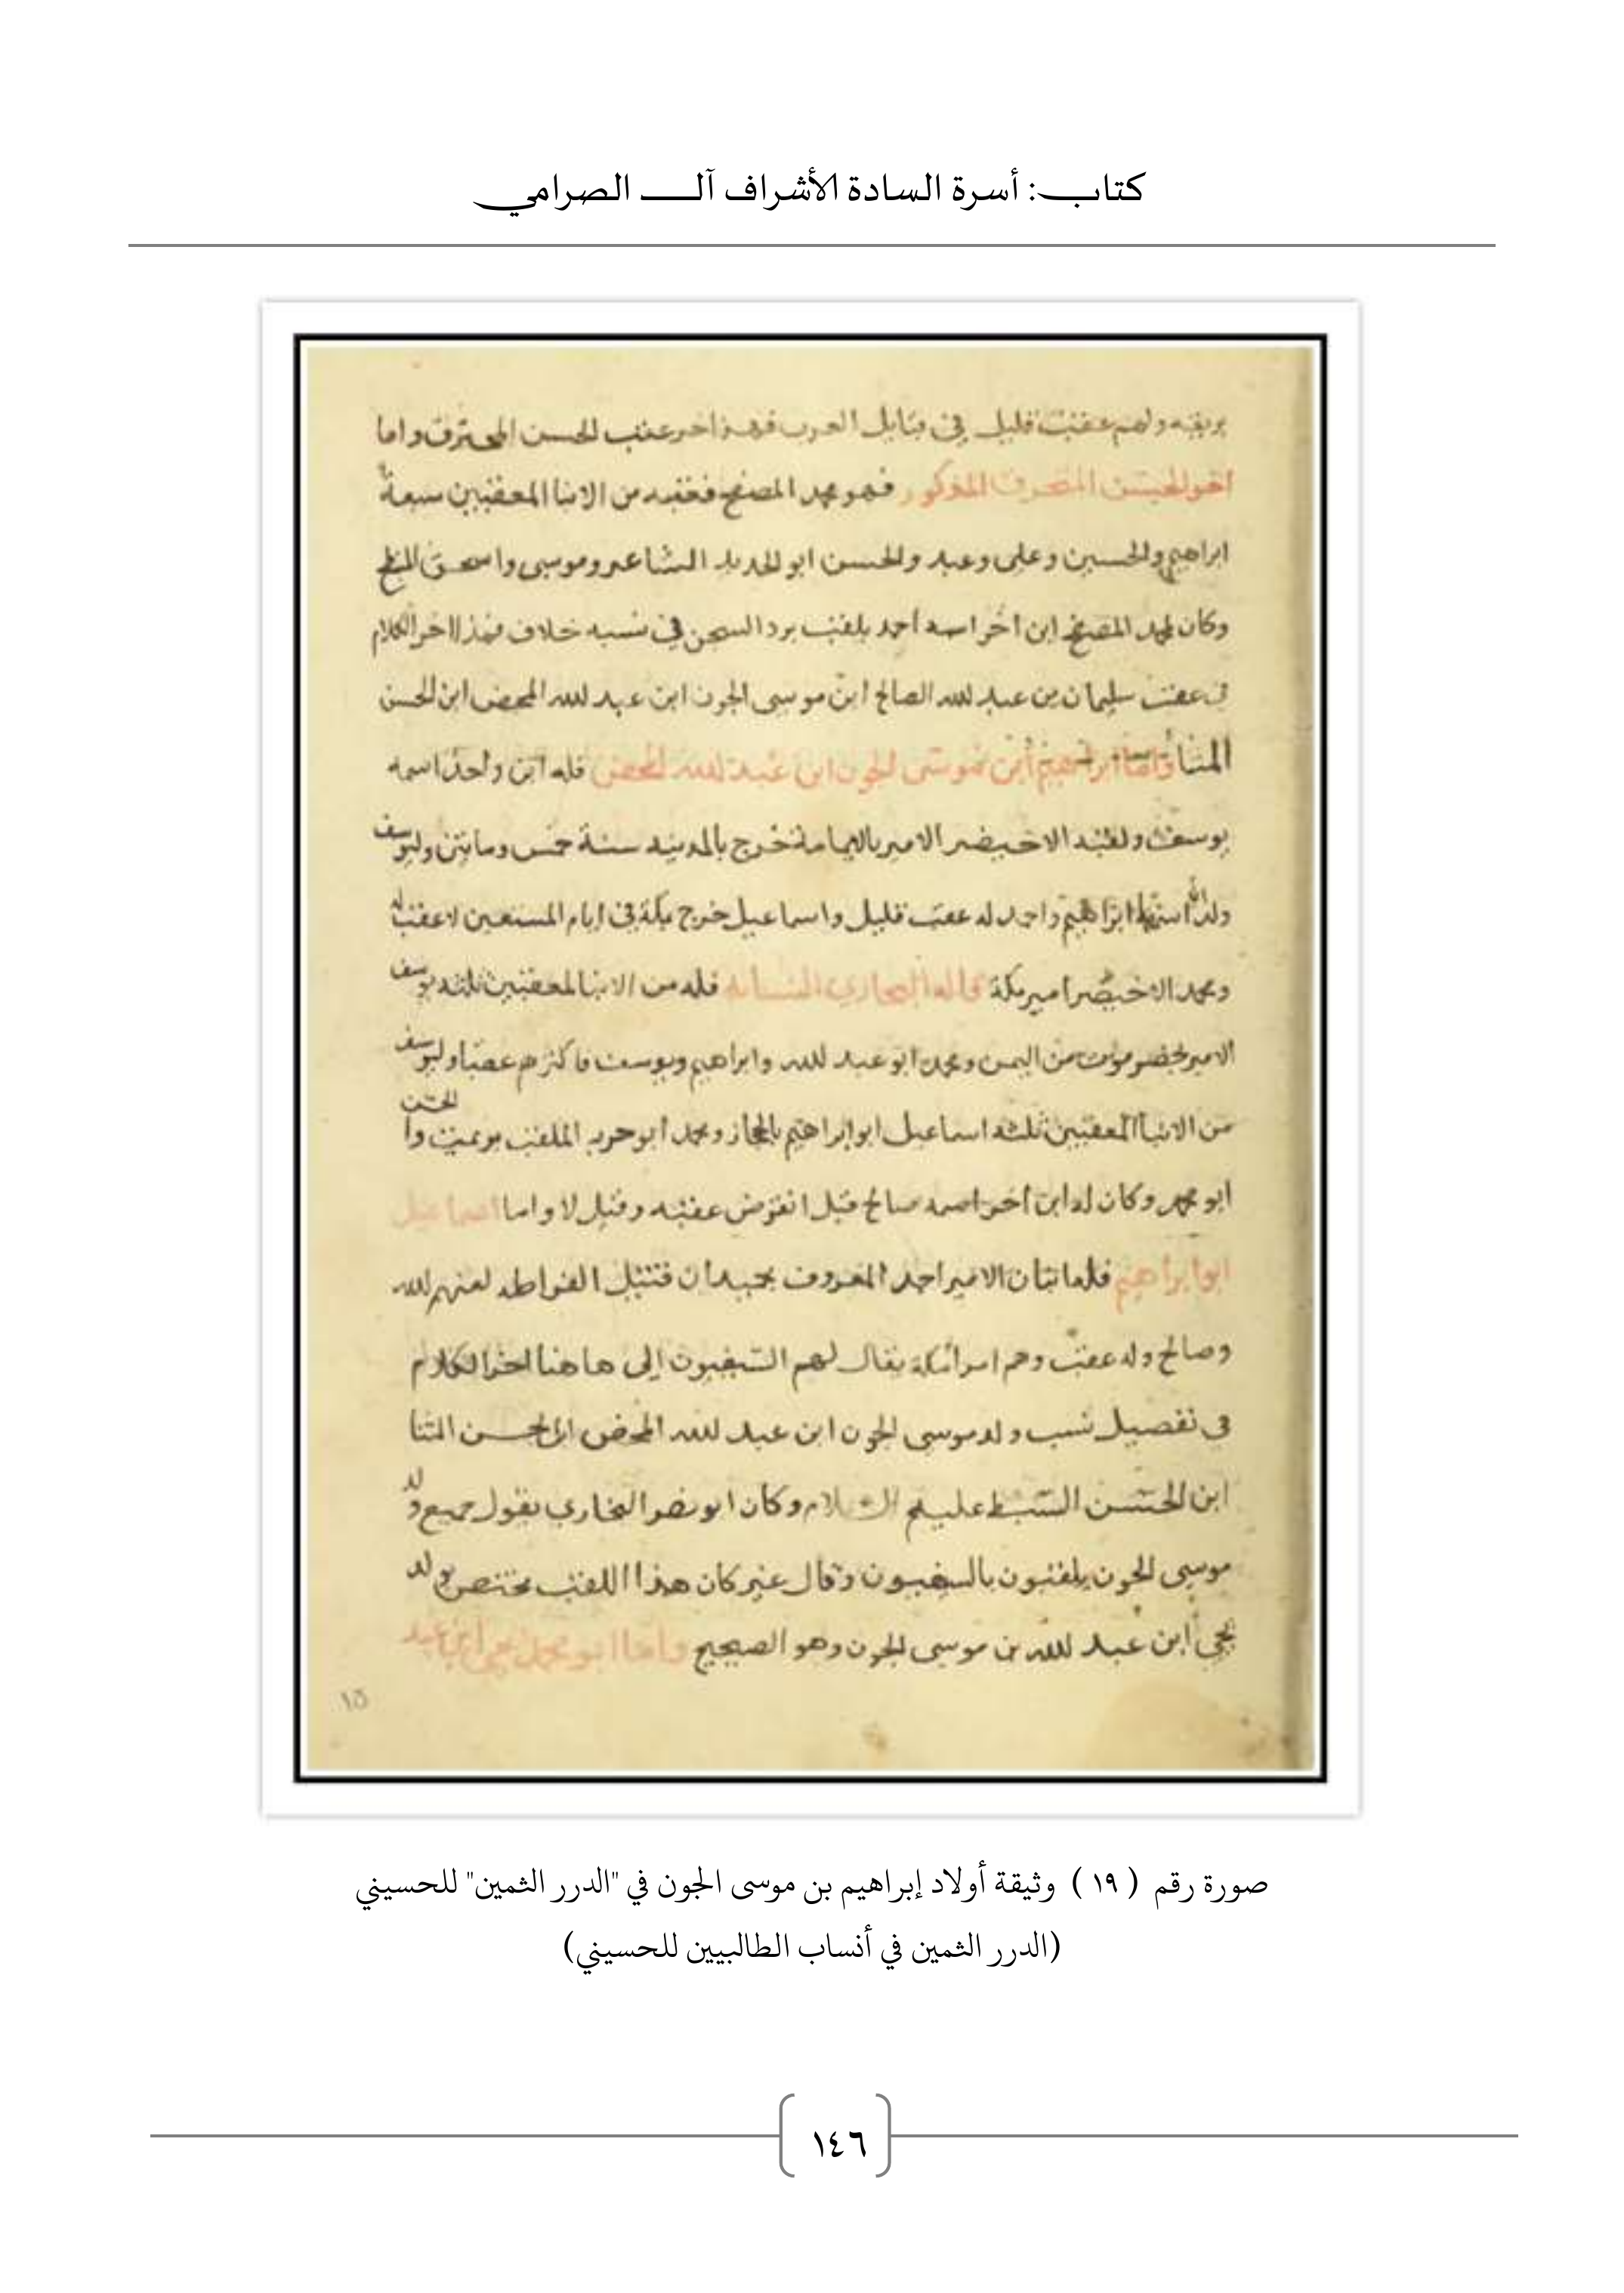 كتاب: أسرة السادة الأشراف آل الصرامي
ولهم عقب قليل في قبايل العرب فهذا اخر عقب الحسن المحترف واما
اخو الحسن المحترف المذكور فهو محمد المصفح فعقبه من الابنا المعقبين سبعة
ابراهيم والحسين وعلى وعبد والحسن ابو الحديد الشاعر وموسى واسحق
وكان لمحمد المصفح ابن اخر اسمه أحمد يلقب برد السجن في نسبه خلاف فهذا اخر الكلام
في عقب سليمان بن عبد لله الصالح ابن موسى الجون ابن عبد لله المحض ابن الحسن
المثنا واما ابراهيم ابن موسى الجون ابن عبد لله المحض فله ابن واحد اسمه
يوسف ولقبه الاخيضر الامير باليمامة خرج بالمدينه سنة خمس وماتين وليوسف
ابراهيم واحمد له عقب قليل واسماعيل خرج بمكة في ايام المستعين لا عقب له
ومحمد الاخيضر امير مكة قاله البخاري النسابه فله من الابنا المعقبين ثلثه يوسف
الامير من اليمن ومحمد ابو عبد لله وابراهيم ويوسف فاكثرهم عقبا وليوسف
من الابنا المعقبين ثلثه اسماعيل ابو ابراهيم بالحجاز ومحمد ابو الملقب والحسن
ابو محمد وكان له ابن اخر اسمه صالح قيل انقرض عقبه وقيل لا واما اسماعيل
ابو ابراهيم فله ابنان الامير احمد المعروف بحميدان قتيل القرامطه لعنهم لله
وصالح وله عقب وهم امرا بمكة يقال لهم إلى هاهنا اخر الكلام
في تفصيل نسب ولد موسى الجون ابن عبد لله المحض ابن الحسن المثنا
ابن الحسن السبط عليهم السلام وكان ابو نصر البخاري يقول جميع ولد
موسى الجون يلقبون وقال غيره كان هذا اللقب مختص بولد
يحيى ابن عبد لله بن موسى الجون وهو الصحيح واما ابو محمد يحيى ابن عبد
١٥
صورة رقم ( ١٩ ) وثيقة أولاد إبراهيم بن موسى الجون في "الدرر الثمين" للحسيني
(الدرر الثمين في أنساب الطالبيين للحسيني)
١٤٦